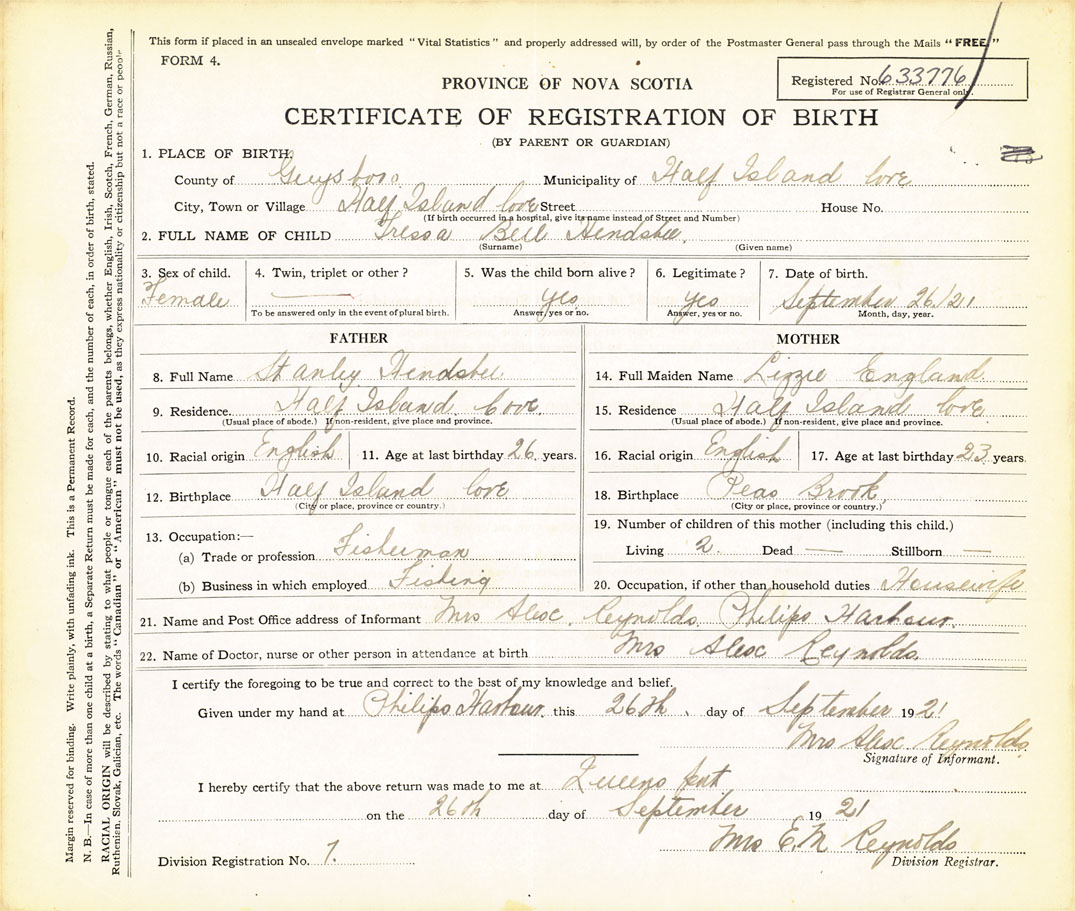 This form if placed in an unsealed envelope marked "Vital Statistics" and properly addressed will, by order of the Postmaster General pass through the Mails "FREE."
FORM 4.
Registered No. 633776
For use of Registrar General only.
PROVINCE OF NOVA SCOTIA
CERTIFICATE OF REGISTRATION OF BIRTH
(BY PARENT OR GUARDIAN)
1. PLACE OF BIRTH.
County of Guysboro Municipality of Half Island Cove
City, Town or Village Half Island Cove Street House No.
(If birth occurred in a hospital, give its name instead of Street and Number)
2. FULL NAME OF CHILD Tressa Bell Hendsbee
(Surname) (Given name)
3. Sex of child. 4. Twin, triplet or other? 5. Was the child born alive? 6. Legitimate? 7. Date of birth.
Female yes yes September 26/21
To be answered only in the event of plural birth. Answer, yes or no. Answer, yes or no. Month, day, year.
FATHER MOTHER
8. Full Name Stanley Hendsbee 14. Full Maiden Name Lizzie England
9. Residence. Half Island Cove 15. Residence Half Island Cove
(Usual place of abode.) If non-resident, give place and province. (Usual place of abode.) If non-resident, give place and province.
10. Racial origin English 11. Age at last birthday 26 years. 16. Racial origin English 17. Age at last birthday 23 years.
12. Birthplace Half Island Cove 18. Birthplace Peas Brook
(City or place, province or country.) (City or place, province or country.)
13. Occupation:— 19. Number of children of this mother (including this child.)
(a) Trade or profession Fisherman Living 2 Dead — Stillborn —
(b) Business in which employed Fishing 20. Occupation, if other than household duties Housewife
21. Name and Post Office address of Informant Mrs Alex. Reynolds. Philips Harbour.
22. Name of Doctor, nurse or other person in attendance at birth Mrs Alex Reynolds.
I certify the foregoing to be true and correct to the best of my knowledge and belief.
Given under my hand at Philips Harbour, this 26th day of September 1921
Mrs Alex Reynolds
Signature of Informant.
I hereby certify that the above return was made to me at Queens port
on the 26th day of September 1921
Mrs E. M Reynolds
Division Registration No. 7. Division Registrar.
Margin reserved for binding. Write plainly, with unfading ink. This is a Permanent Record.
N. B.—In case of more than one child at a birth, a Separate Return must be made for each, and the number of each, in order of birth, stated.
RACIAL ORIGIN will be described by stating to what people or tongue each of the parents belongs, whether English, Irish, Scotch, French, German, Russian,
Ruthenien, Slovak, Galician, etc. The words "Canadian" or "American" must not be used, as they express nationality or citizenship but not a race or people